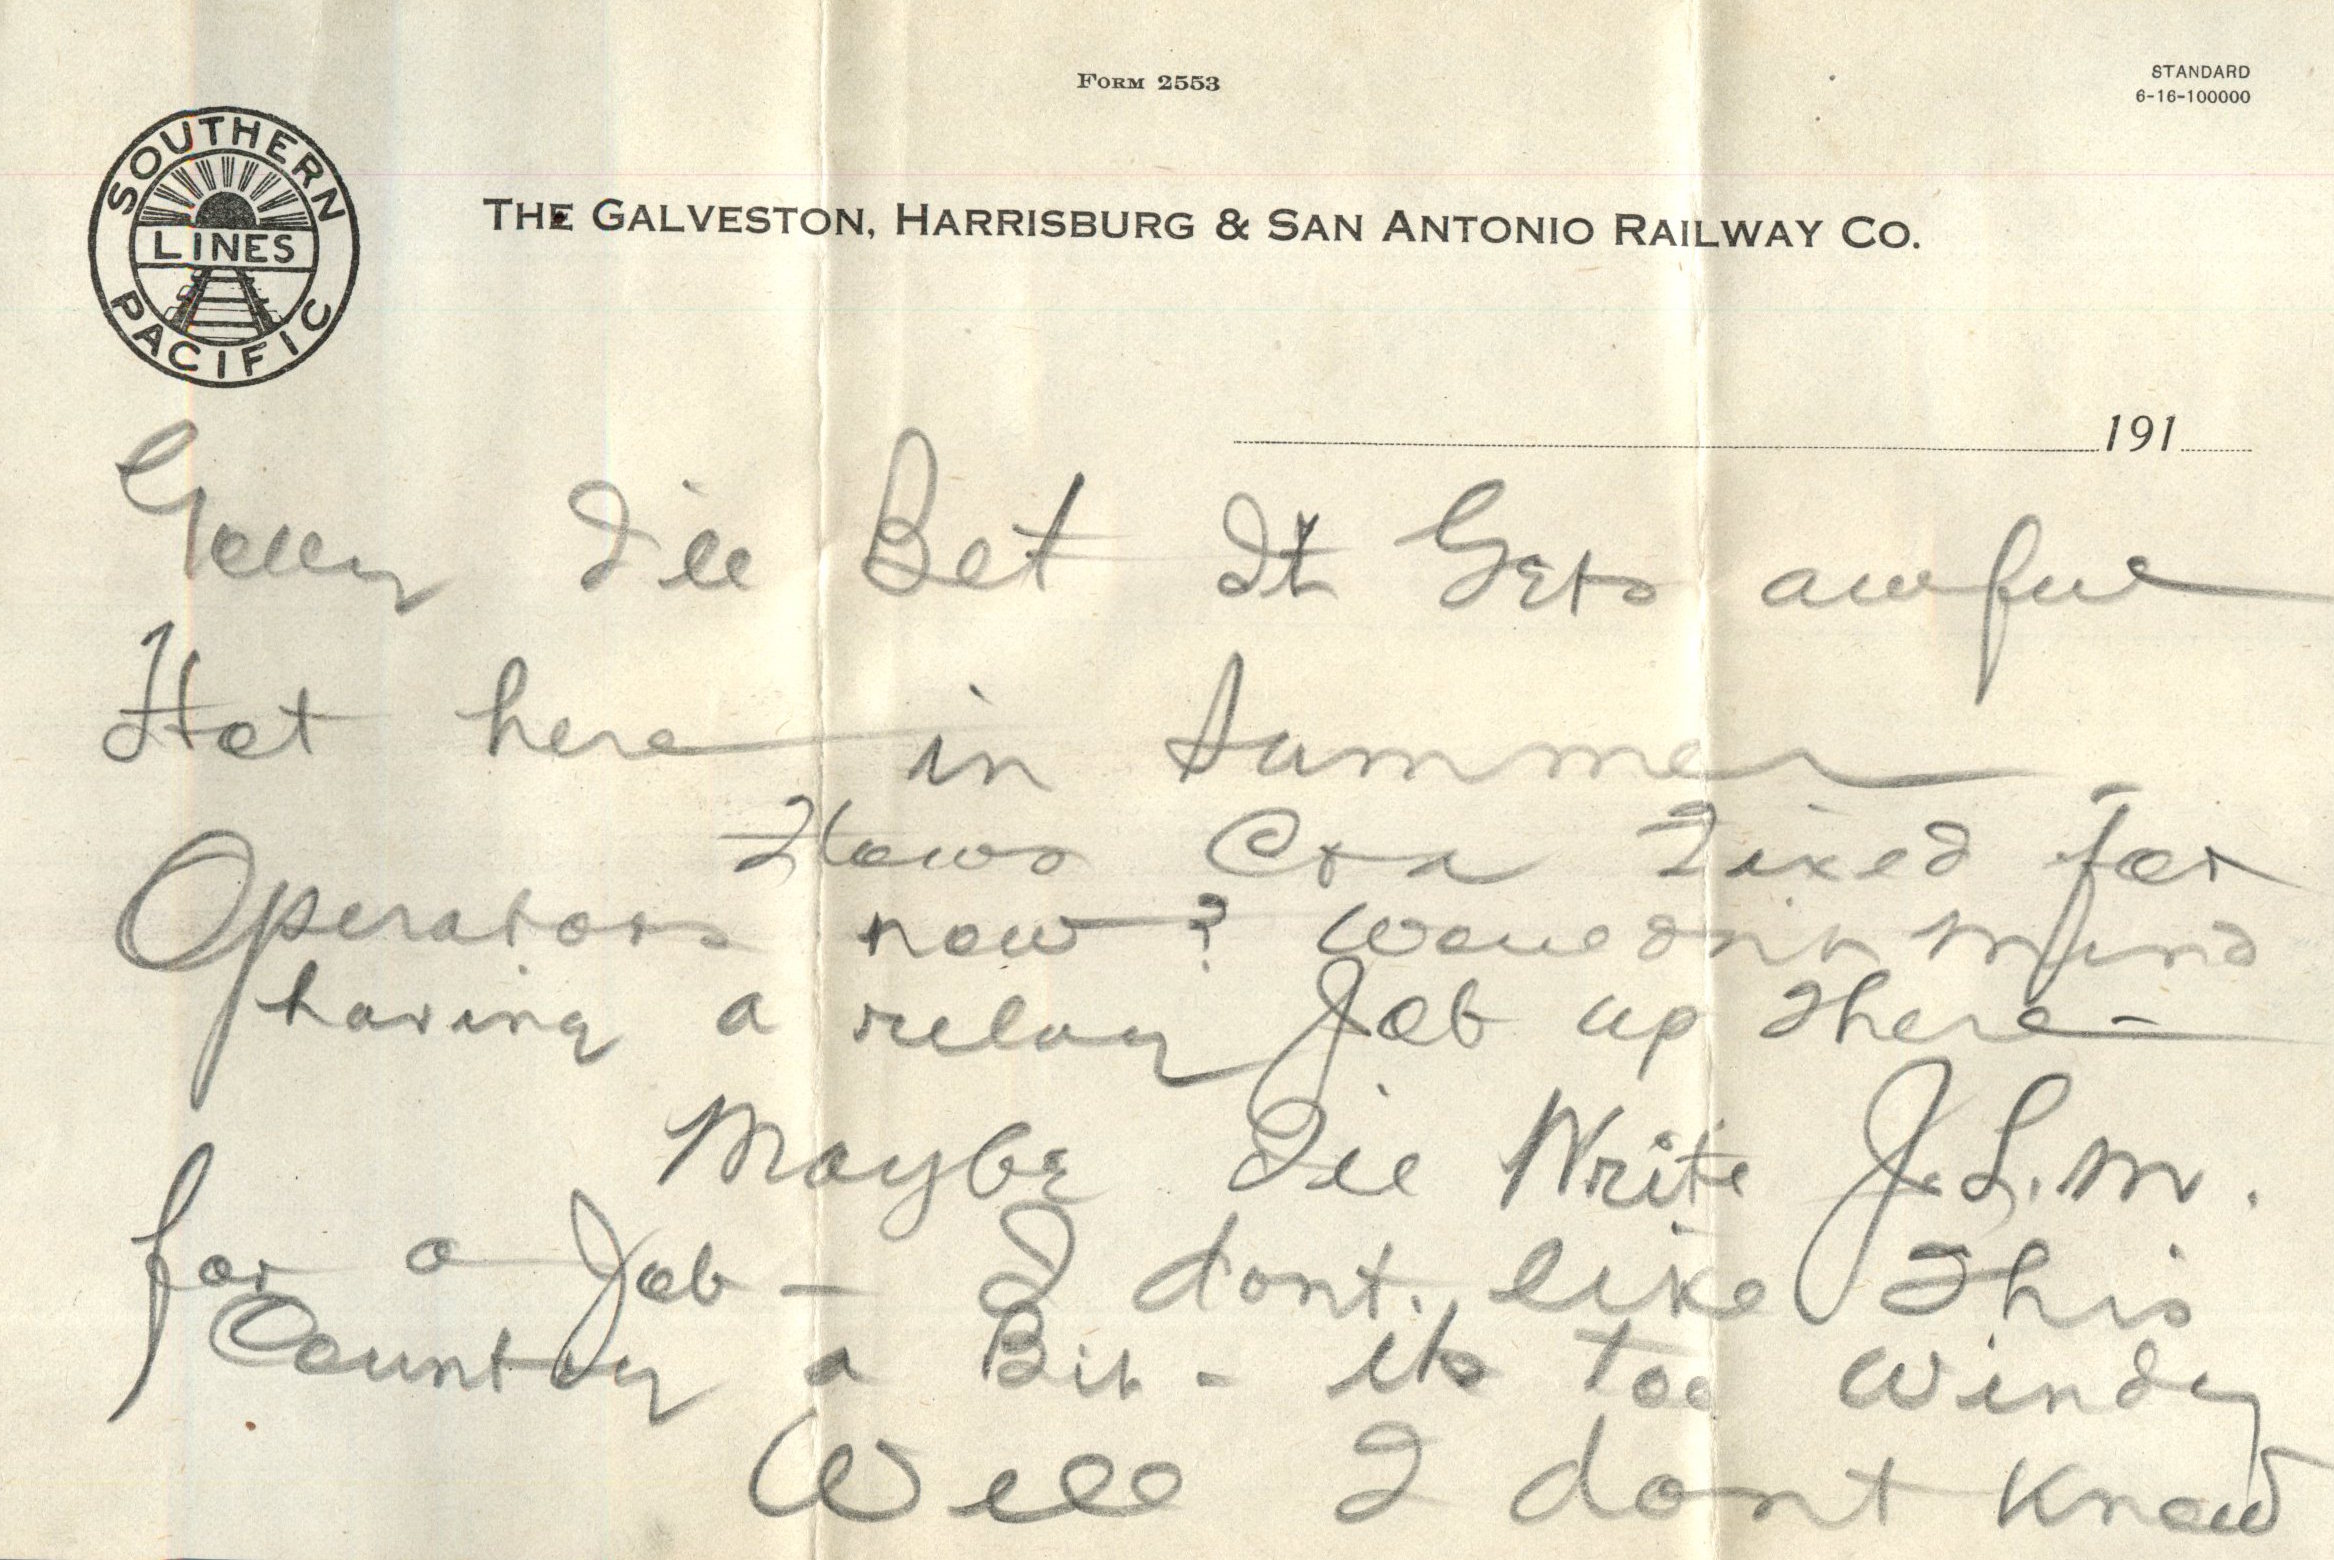 FORM 2553
STANDARD
6-16-100000
SOUTHERN
LINES
PACIFIC
THE GALVESTON, HARRISBURG & SAN ANTONIO RAILWAY CO.
191
Golly I'll Bet It Gets awful
Hot here in Summer
Hows Cox Fixed for
Operators now? Wouldnt mind
having a relay Job up There -
Maybe Ill Write J.L.M.
for a Job - I dont like This
Country a Bit - its too windy
Well I dont Know